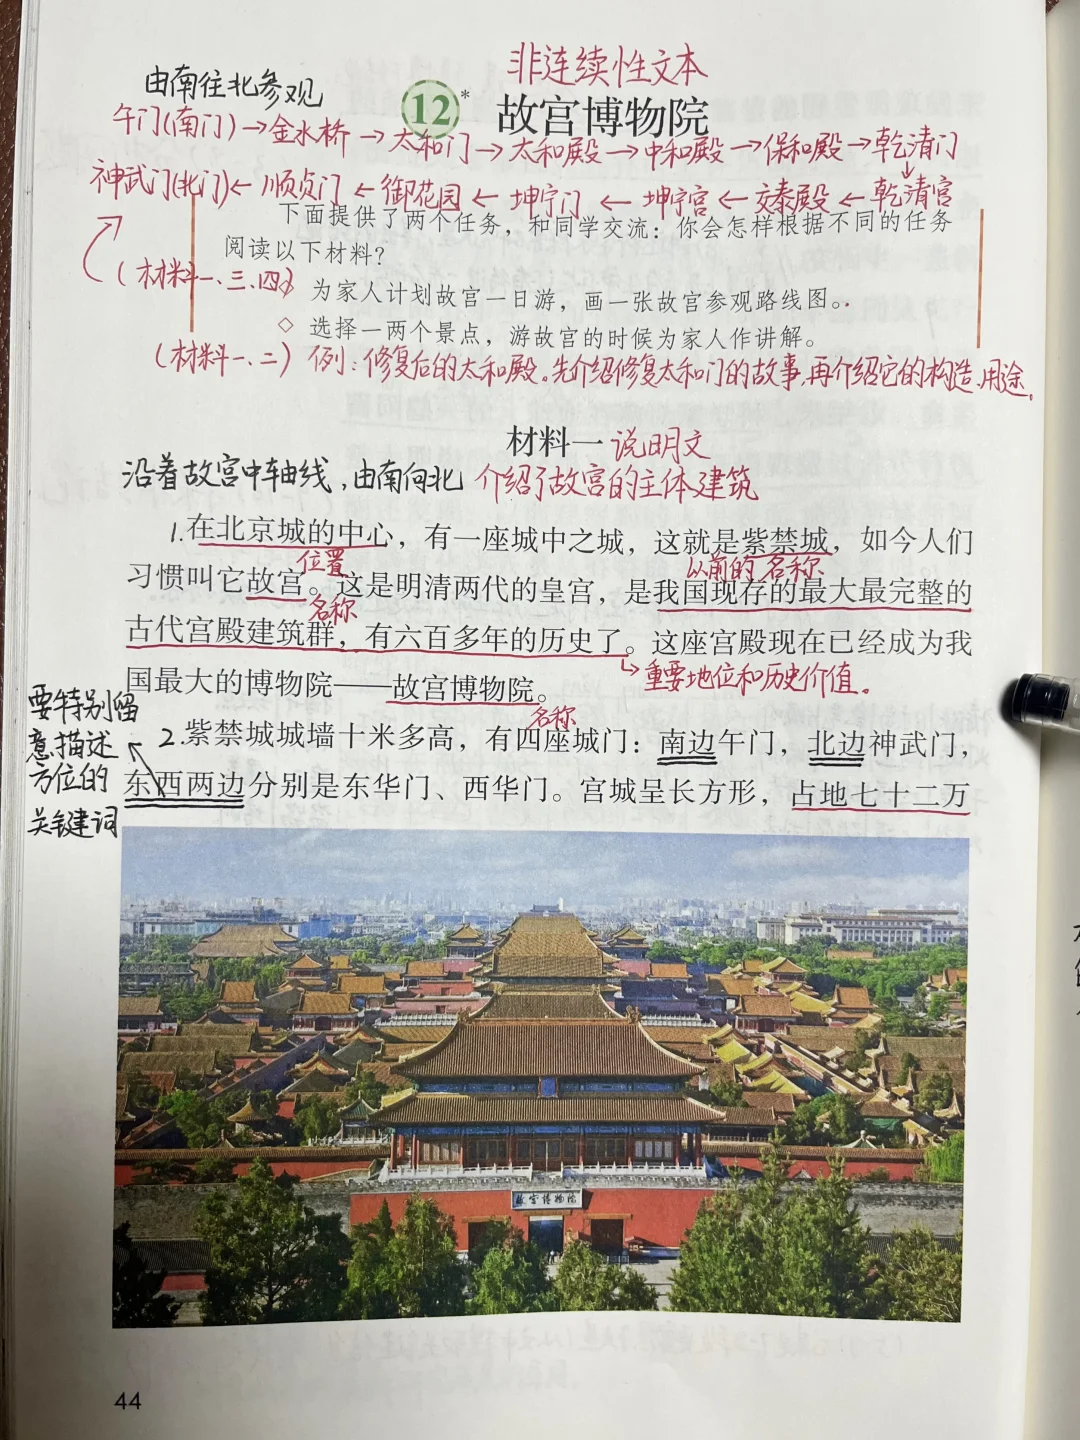 非连续性文本
由南往北参观
12* 故宫博物院
午门(南门)→金水桥→太和门→太和殿→中和殿→保和殿→乾清门
↓
神武门(北门)←顺贞门←御花园←坤宁门←坤宁宫←交泰殿←乾清宫
下面提供了两个任务，和同学交流：你会怎样根据不同的任务
阅读以下材料？
(材料一、三、四)
◇ 为家人计划故宫一日游，画一张故宫参观路线图。
◇ 选择一两个景点，游故宫的时候为家人作讲解。
(材料一、二) 例：修复后的太和殿。先介绍修复太和门的故事,再介绍它的构造、用途。
材料一 说明文
沿着故宫中轴线,由南向北 介绍了故宫的主体建筑
1.在北京城的中心，有一座城中之城，这就是紫禁城，如今人们
位置 以前的名称
习惯叫它故宫。这是明清两代的皇宫，是我国现存的最大最完整的
名称
古代宫殿建筑群，有六百多年的历史了。这座宫殿现在已经成为我
↳重要地位和历史价值。
国最大的博物院——故宫博物院。
名称
要特别留
意描述
方位的
关键词
2.紫禁城城墙十米多高，有四座城门：南边午门，北边神武门，
东西两边分别是东华门、西华门。宫城呈长方形，占地七十二万
故宫博物院
44